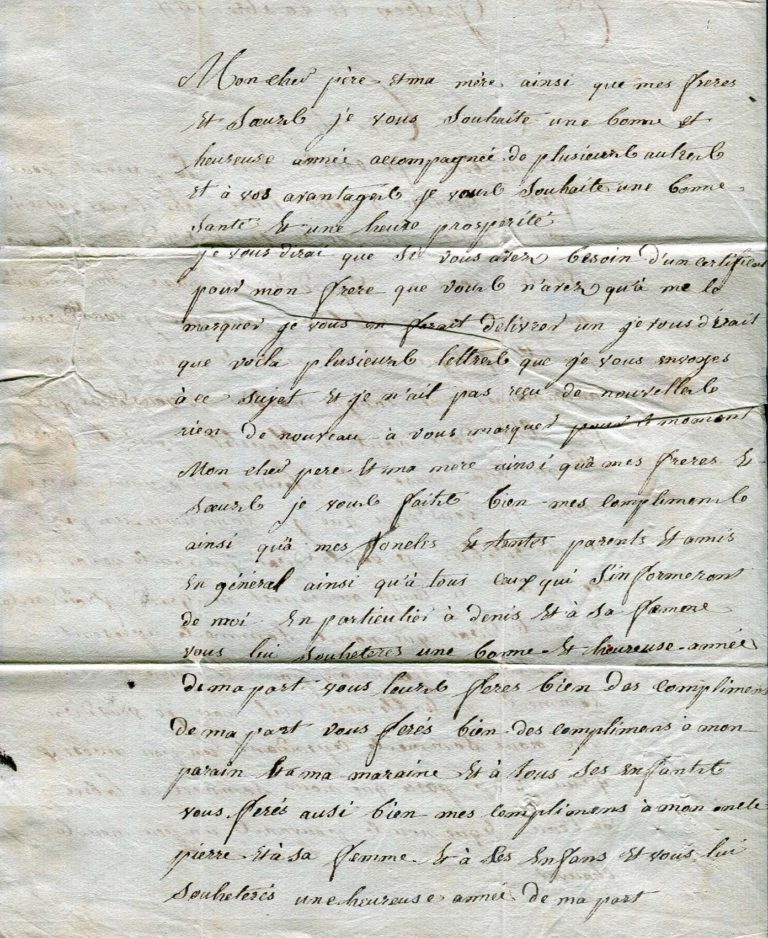 Mon cher père et ma mère ainsi que mes freres
et sœurs je vous souhaite une bonne et
heureuse année accompagnée de plusieurs autres
et à vos avantages je vous souhaite une bonne
santé et une heure prosperité
je vous dirai que si vous avez besoin d'un certificat
pour mon frere que vous n'avez qu'à me le
marquer je vous en ferait délivrer un je vous dirait
que voila plusieurs lettres que je vous envoyes
à ce sujet et je n'ail pas reçu de nouvelles
rien de nouveau à vous marquer pour le moment
Mon cher pere et ma mere ainsi qu'à mes freres et
sœurs je vous faits bien mes compliments
ainsi qu'à mes foncles et tentes parents et amis
en général ainsi qu'à tous ceux qui s'informeront
de moi en particulier à denis et à sa femme
vous lui souheteres une bonne et heureuse année
de ma part vous leurs feres bien des complimens
de ma part vous ferés bien des complimens à mon
parain et a ma maraine et à tous ses enfants
vous ferés ausi bien mes complimens à mon oncle
pierre et à sa femme et à ses enfans et vous lui
souheterés une heureuse année de ma part